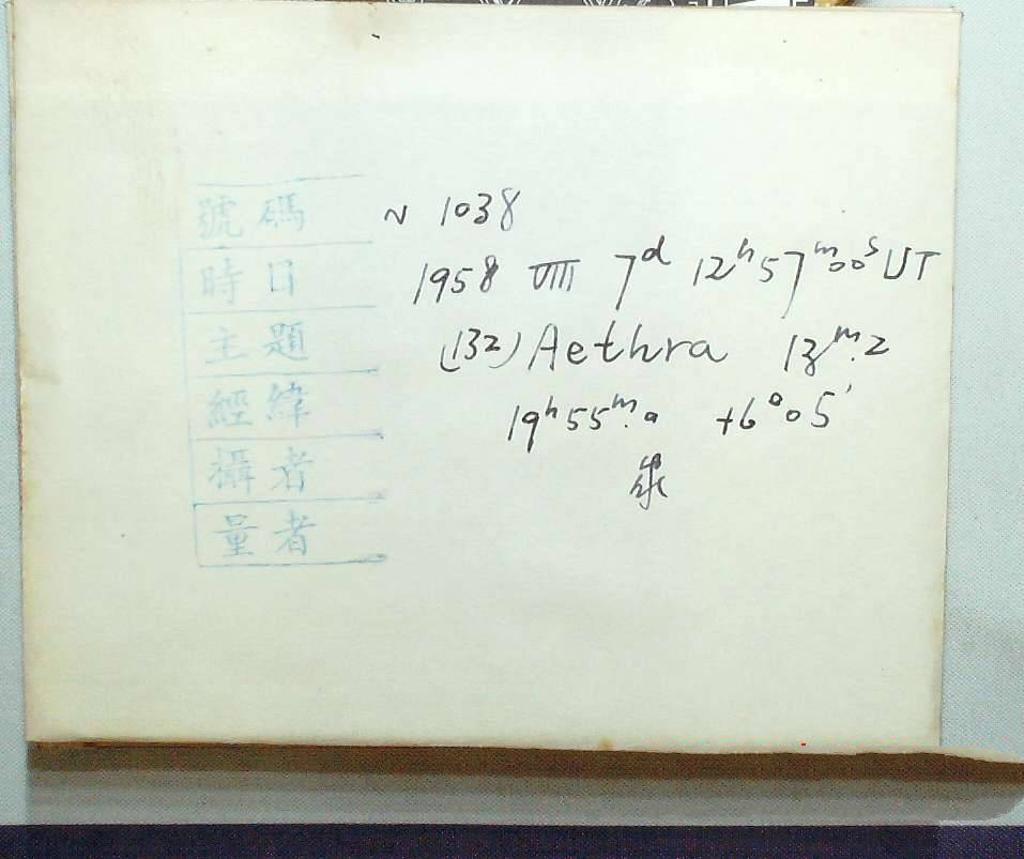 號碼 N 1038
時日 1958 VIII 7ᵈ 12ʰ57ᵐ00ˢ UT
主題 (132) Aethra 13ᵐ.2
經緯 19ʰ55ᵐ.0 +6°05′
攝者
量者